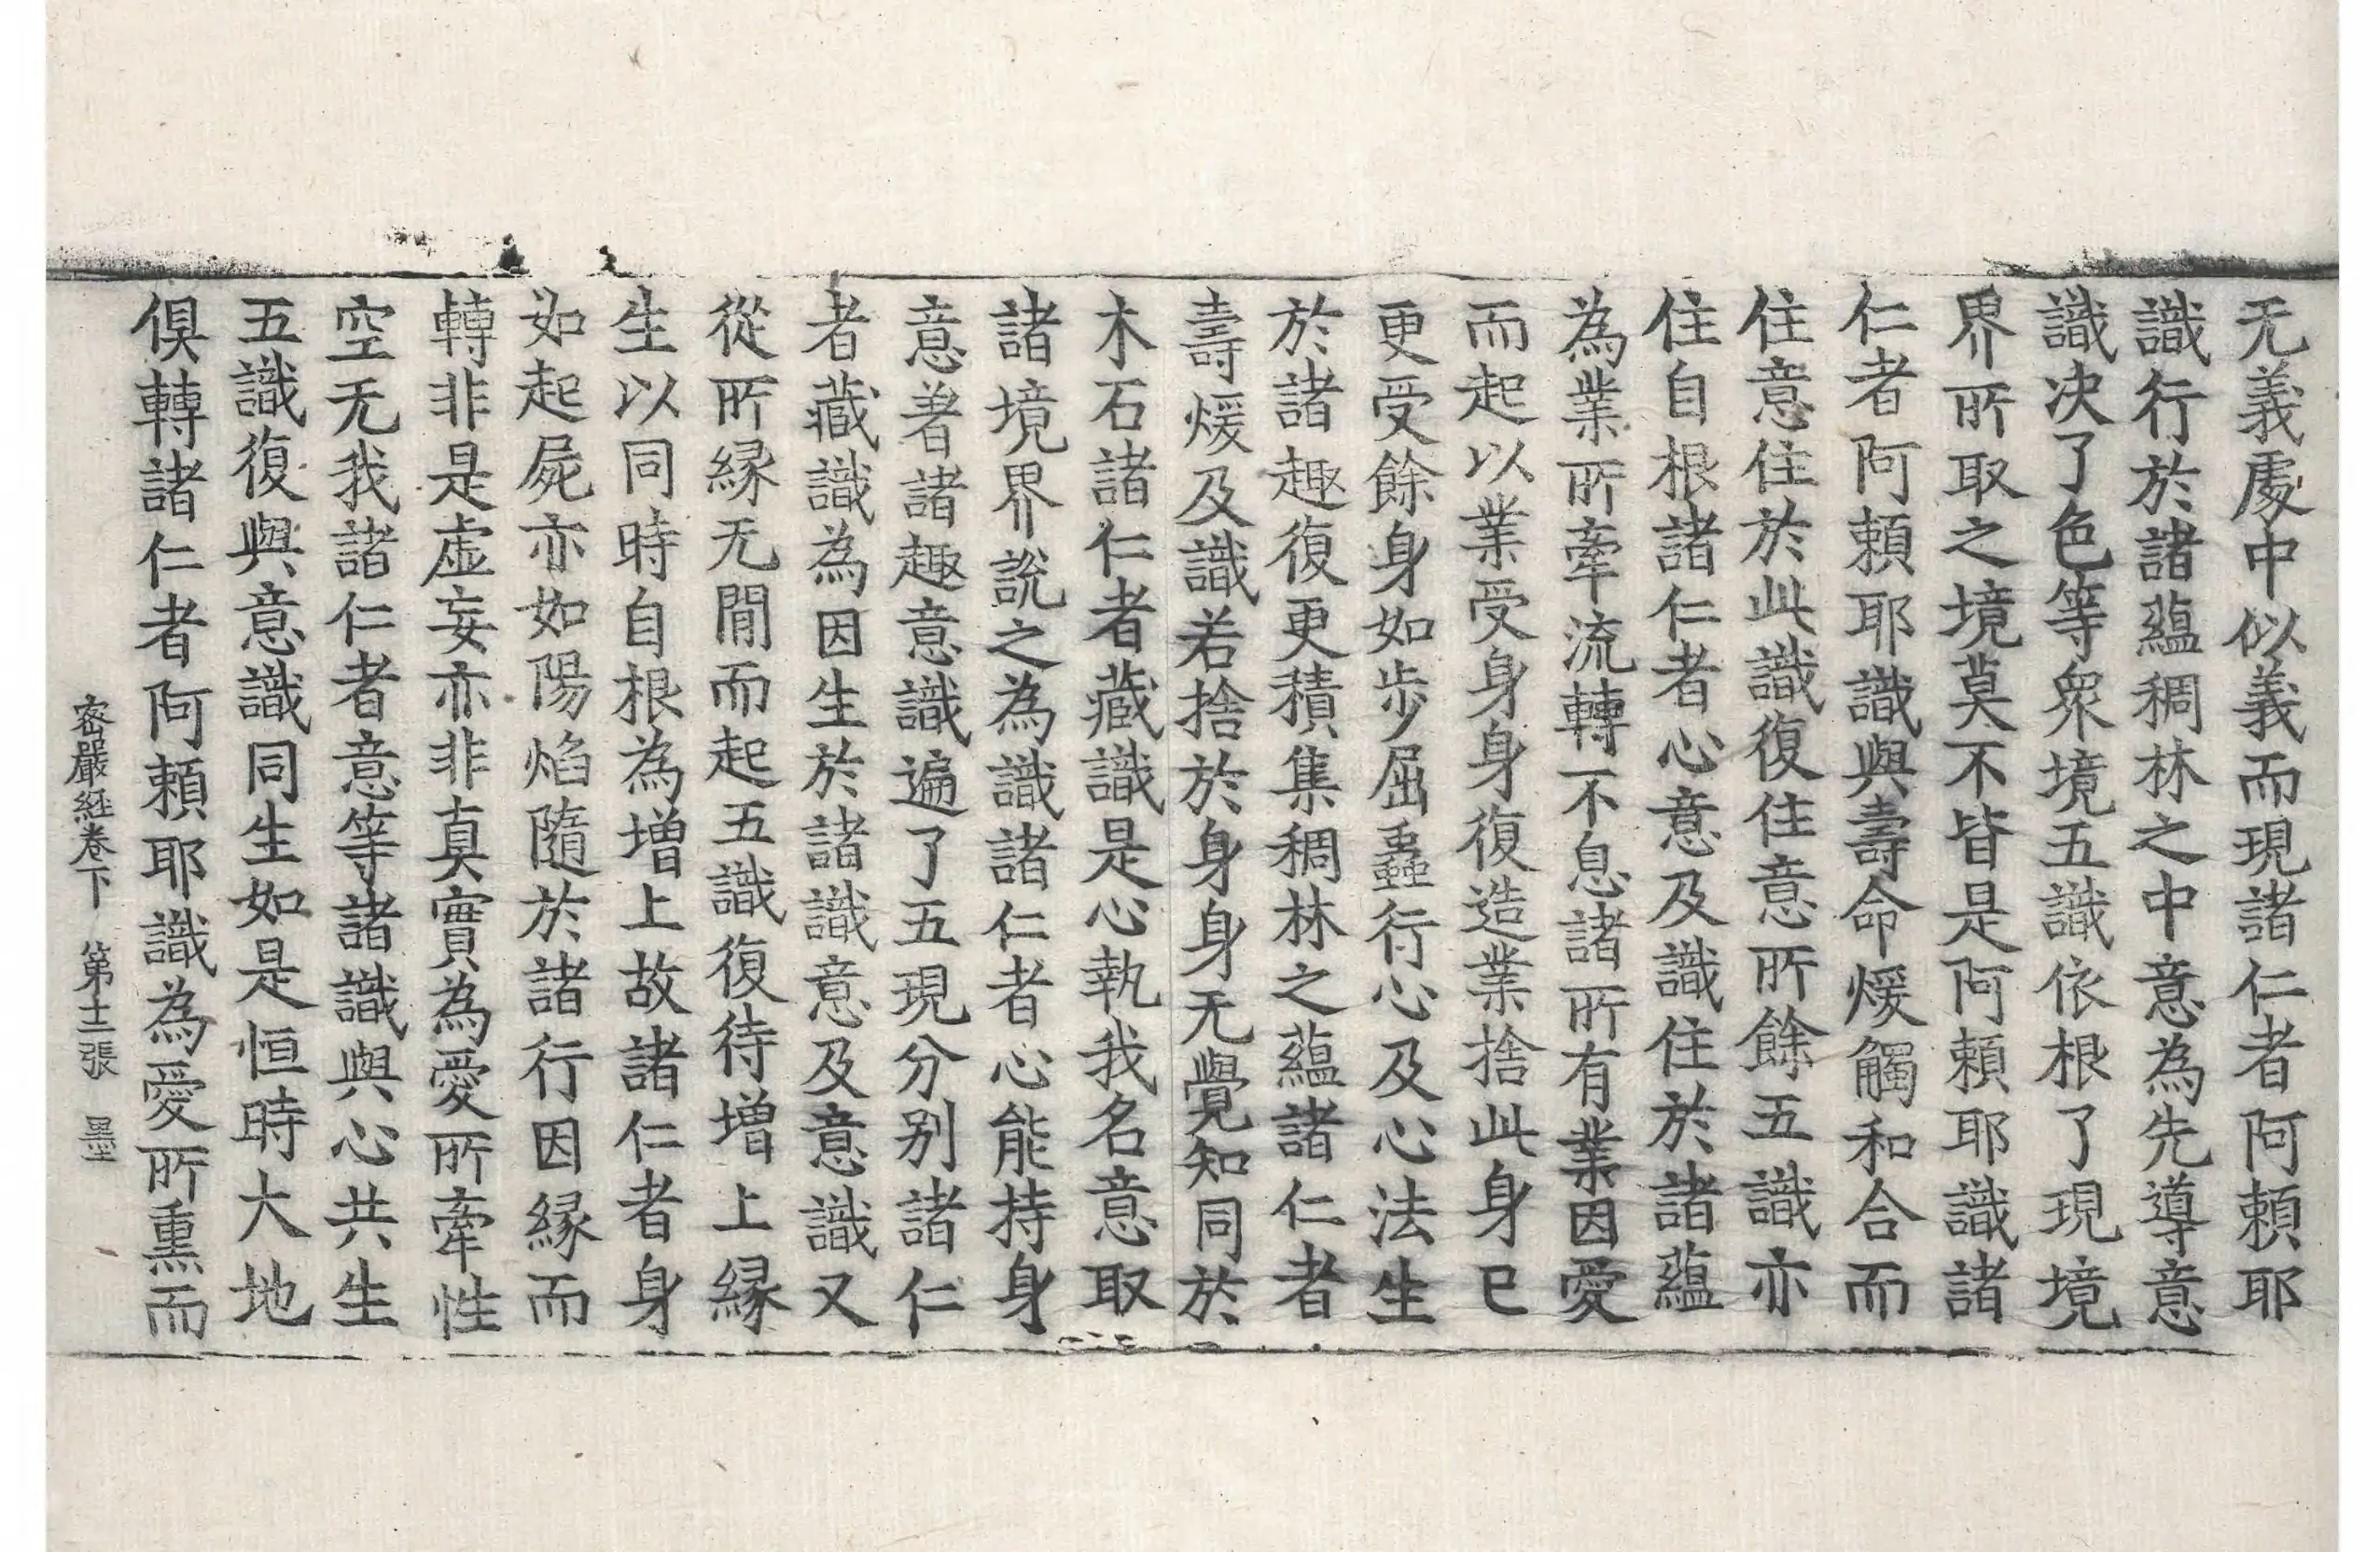 无義處中似義而現諸仁者阿賴耶
識行於諸蘊稠林之中意為先導意
識决了色等衆境五識依根了現境
界所取之境莫不皆是阿賴耶識諸
仁者阿賴耶識與壽命煖觸和合而
住意住於此識復住意所餘五識亦
住自根諸仁者心意及識住於諸蘊
為業所牽流轉不息諸所有業因愛
而起以業受身身復造業捨此身已
更受餘身如步屈蟲行心及心法生
於諸趣復更積集稠林之蘊諸仁者
壽煖及識若捨於身身无覺知同於
木石諸仁者藏識是心執我名意取
諸境界說之為識諸仁者心能持身
意著諸趣意識遍了五現分别諸仁
者藏識為因生於諸識意及意識又
從所縁无閒而起五識復待增上縁
生以同時自根為增上故諸仁者身
如起屍亦如陽焰隨於諸行因縁而
轉非是虚妄亦非真實為愛所牽性
空无我諸仁者意等諸識與心共生
五識復與意識同生如是恒時大地
俱轉諸仁者阿賴耶識為愛所熏而
密嚴経卷下 第十二張 墨